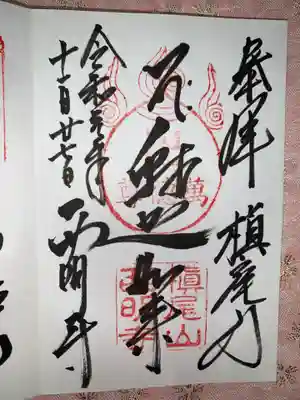 奉拝 槇尾山
釈迦如来
令和元年
十一月廿七日
西明寺
槇尾山
西明寺